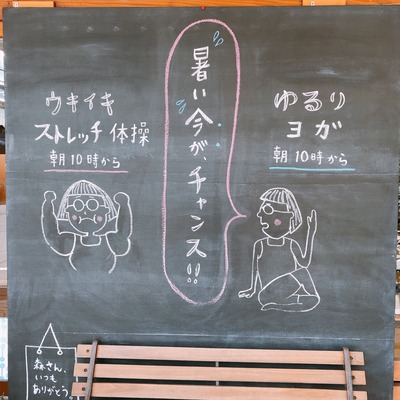 ウキイキ
ストレッチ体操
朝10時から
暑い今が、チャンス!!
ゆるり
ヨガ
朝10時から
森さん、
いつも
ありがとう。